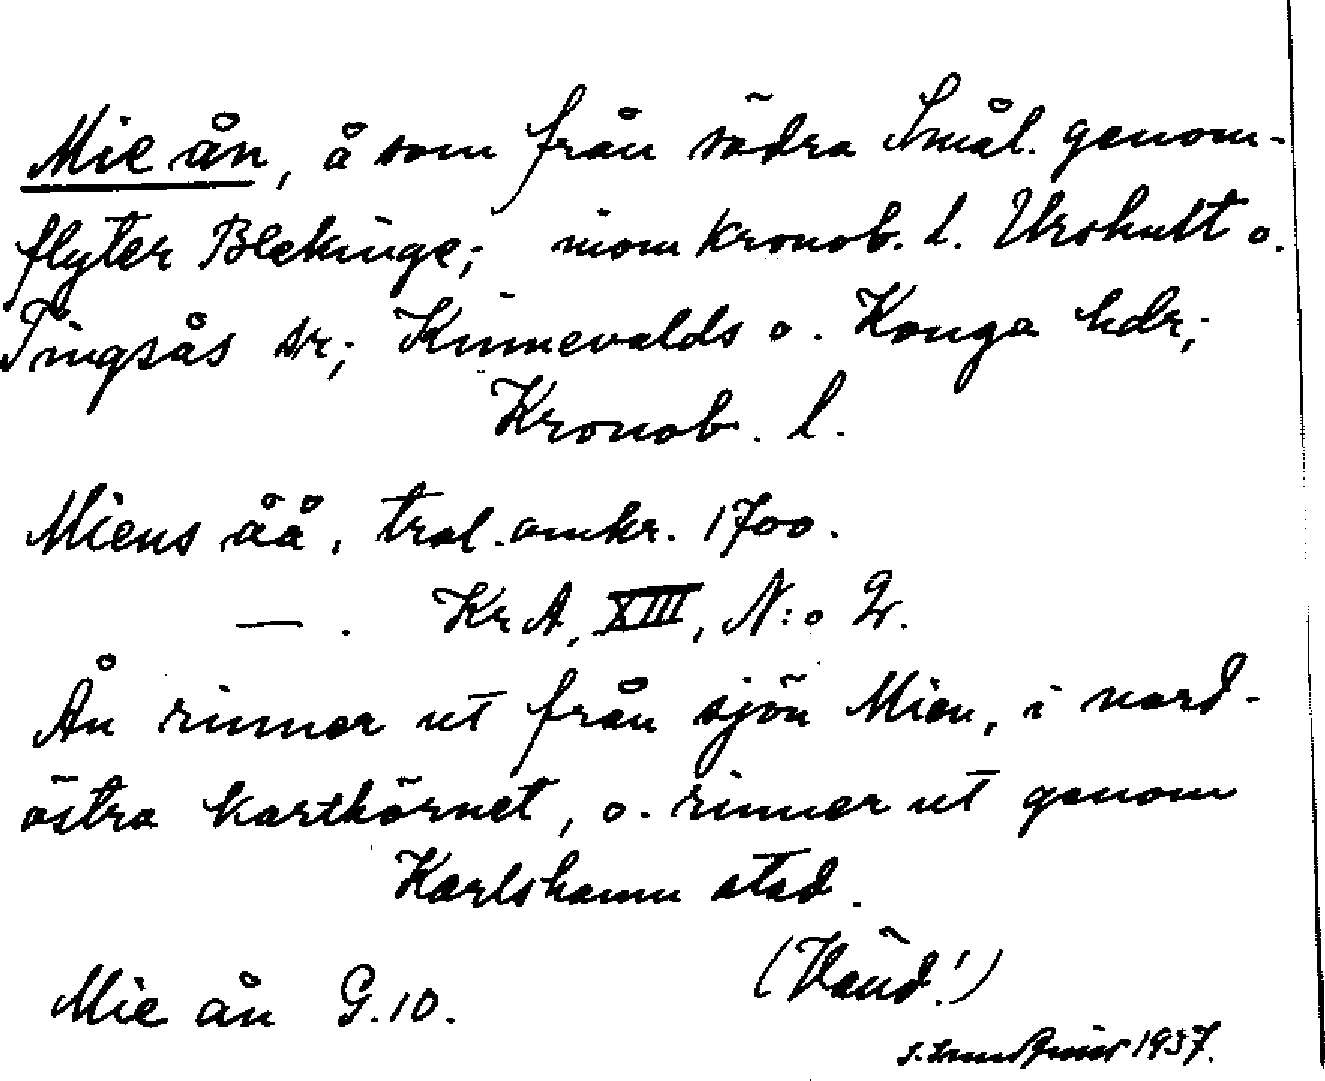 Mie ån, å som från södra Smål. genom-
flyter Blekinge; inom Kronob. l. Urshult o.
Tingsås snr; Kinnevalds o. Konga hdr;
Kronob. l.
Miens åå, trol. omkr. 1700.
— . KrA, XIII, N:o 2.
Ån rinner ut från sjön Mien, i nord-
östra karthörnet, o. rinner ut genom
Karlshamn stad.
(Vänd!)
Mie ån G.10.
1937.